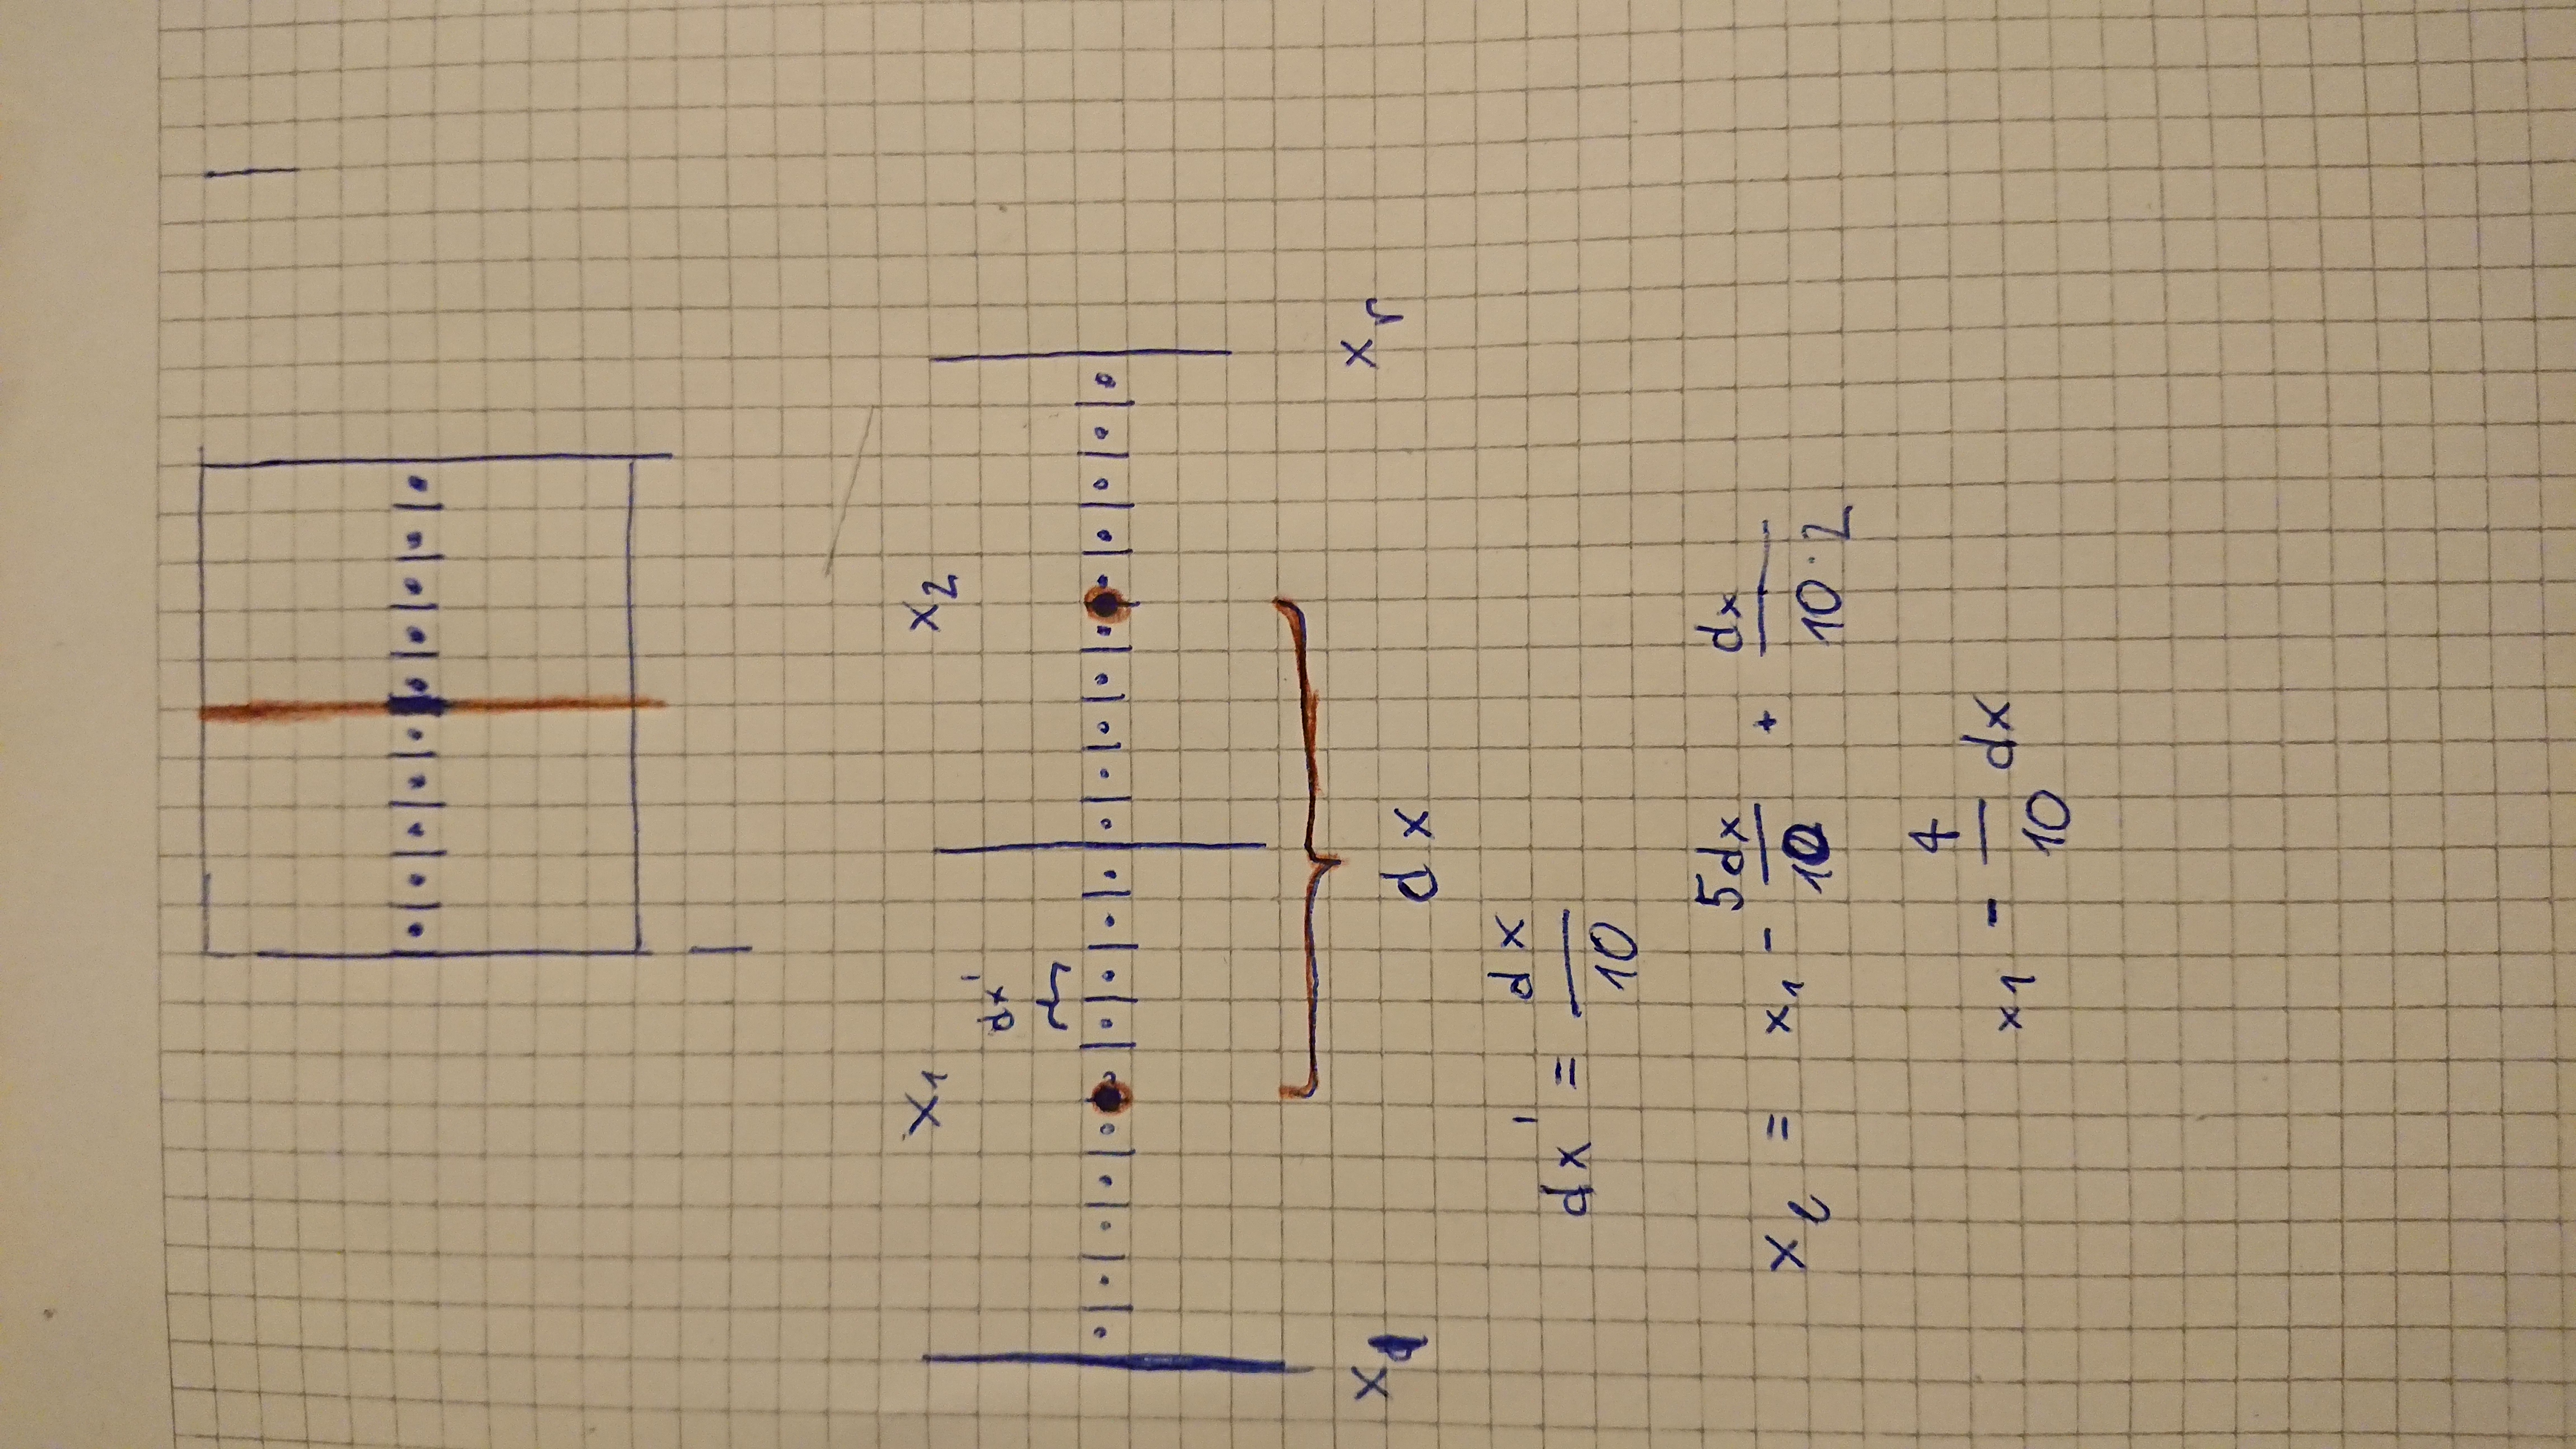 x₁ x₂
dx'
x xᵣ
dx
dx' = dx/10
xₗ = x₁ - 5dx/10 + dx/10·2
x₁ - 4/10 dx